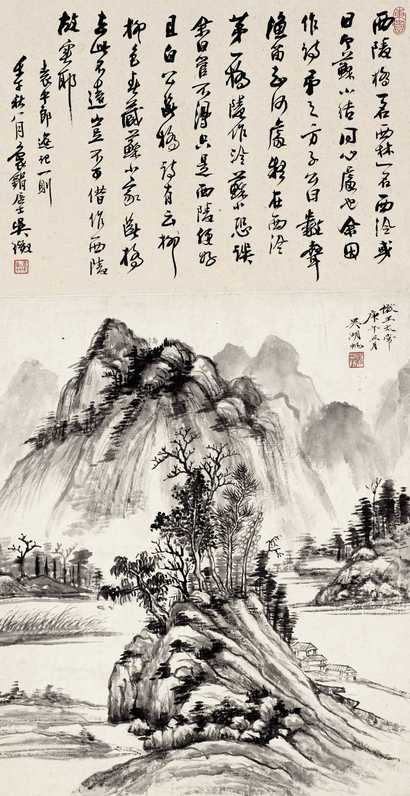 西陵橋一名西林一名西泠或
曰即蘇小結同心處也余因
作詩弔之方子公曰數聲
漁笛知何處疑在西泠
第一橋陵作泠蘇小恐誤
余曰管不得只是西陵便好
且白公斷橋詩有云柳
柳色春藏蘇小家斷橋
去此不遠豈不可借作西陵
故實耶
袁中郎遊記一則
壬午秋八月袌鋗居士吳徵
擬王太常
庚午月
吳湖帆